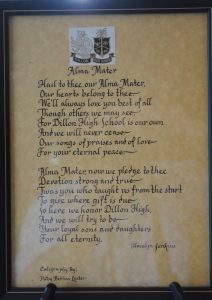 Alma Mater
Hail to thee our Alma Mater,
Our hearts belong to thee
We'll always love you best of all
Though others we may see
For Dillon High School is our own
And we will never cease
Our songs of praises and of love
For your eternal peace
Alma Mater, now we pledge to thee
Devotion strong and true
Twas you who taught us from the start
To give where gift is due
So here we honor Dillon High,
And we will try to be
Your loyal sons and daughters
For all eternity.
Jenkins
Caligraphy By: